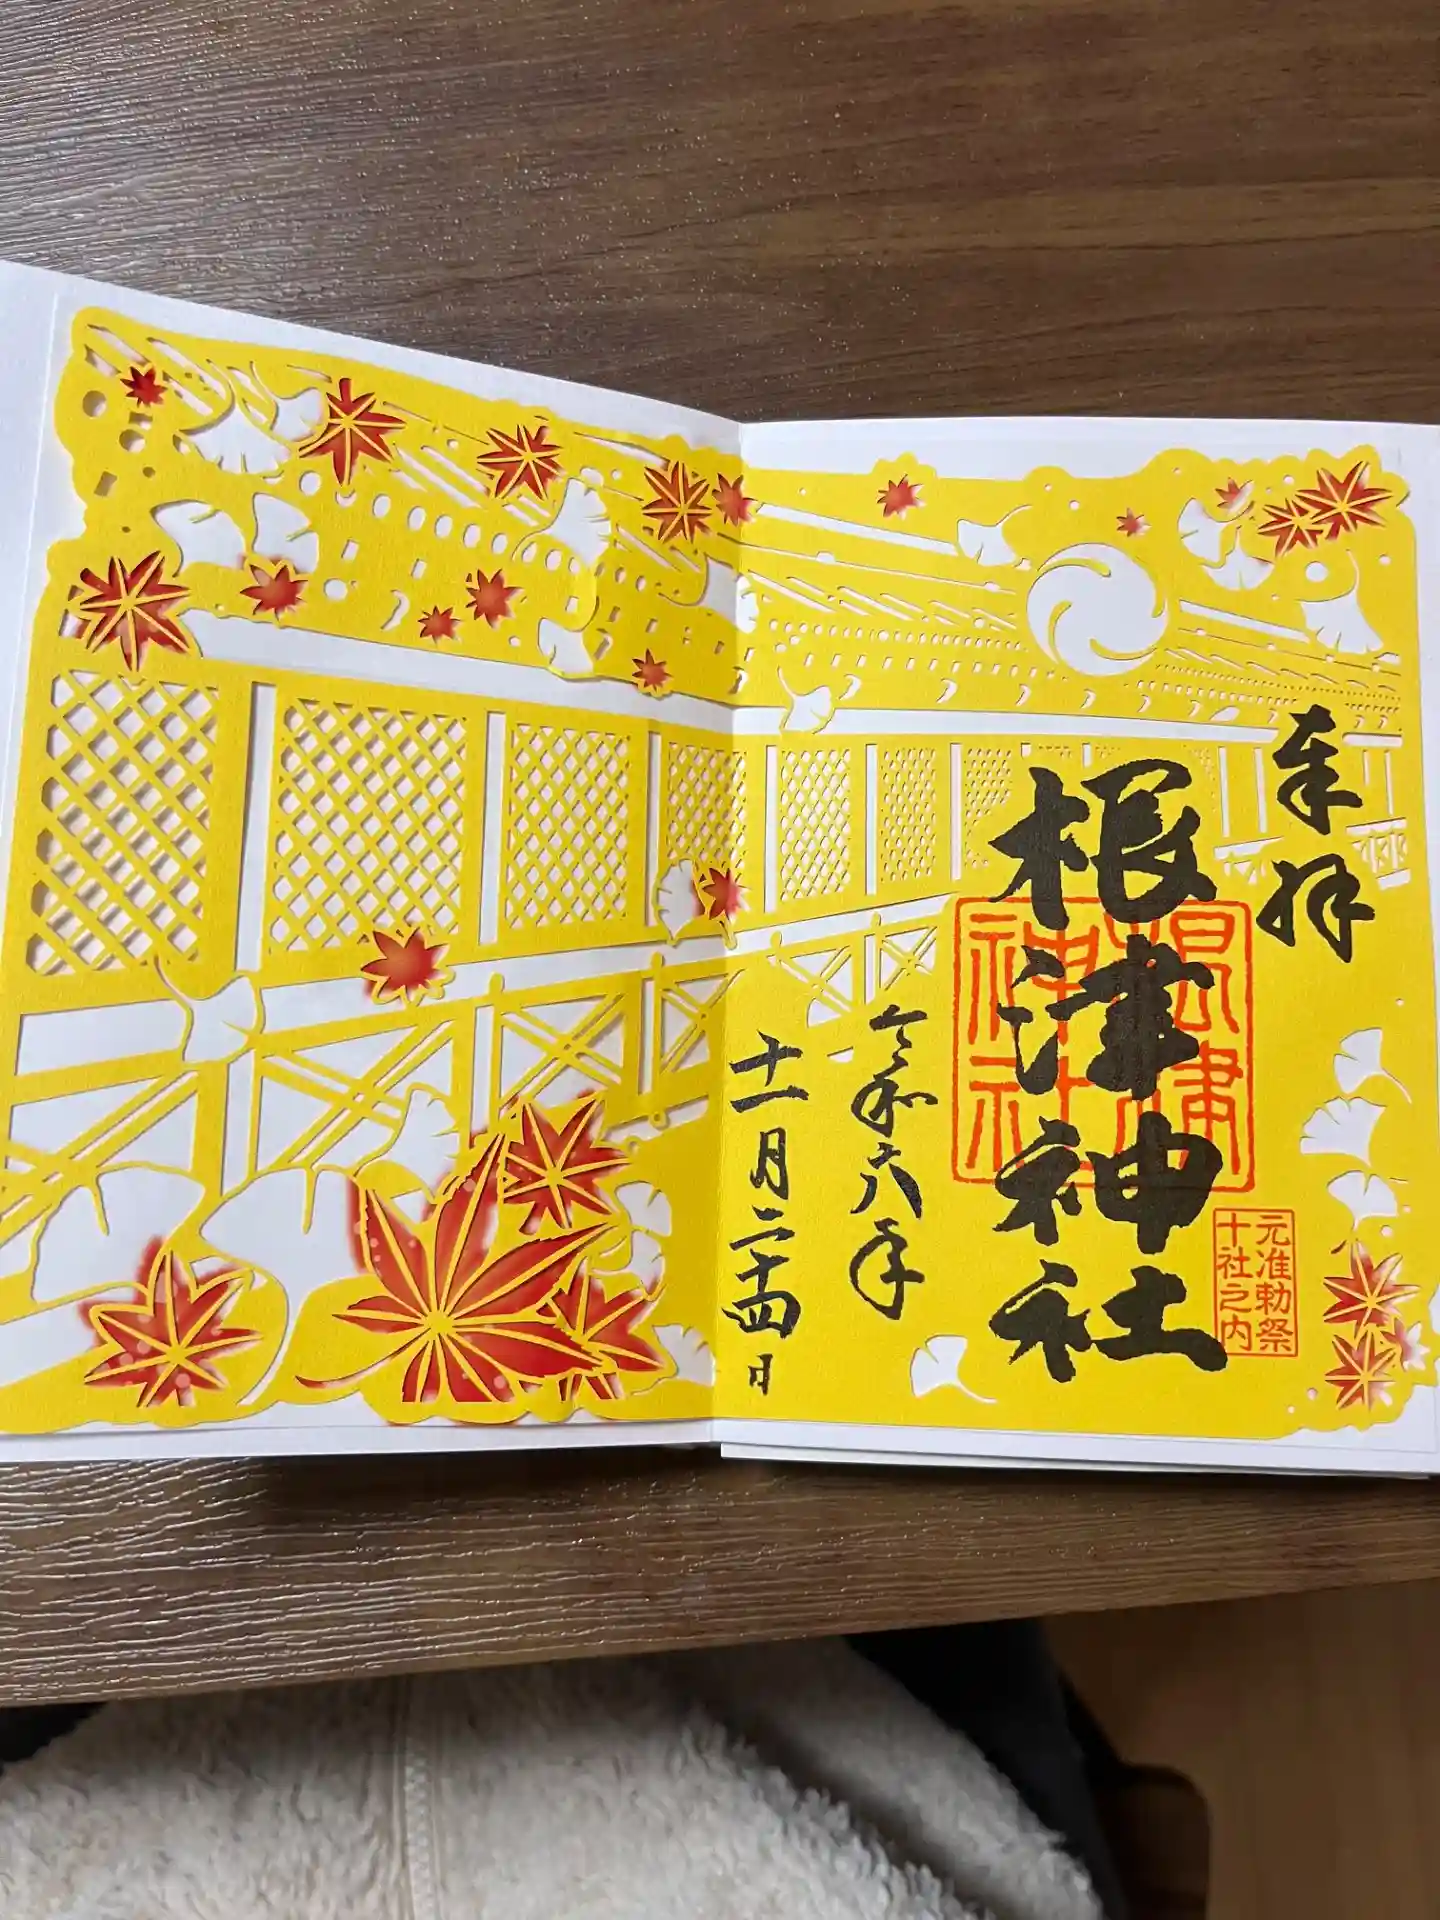 奉拝
根津神社
根津神社
元准勅祭
十社之内
令和六年
十一月二十四日